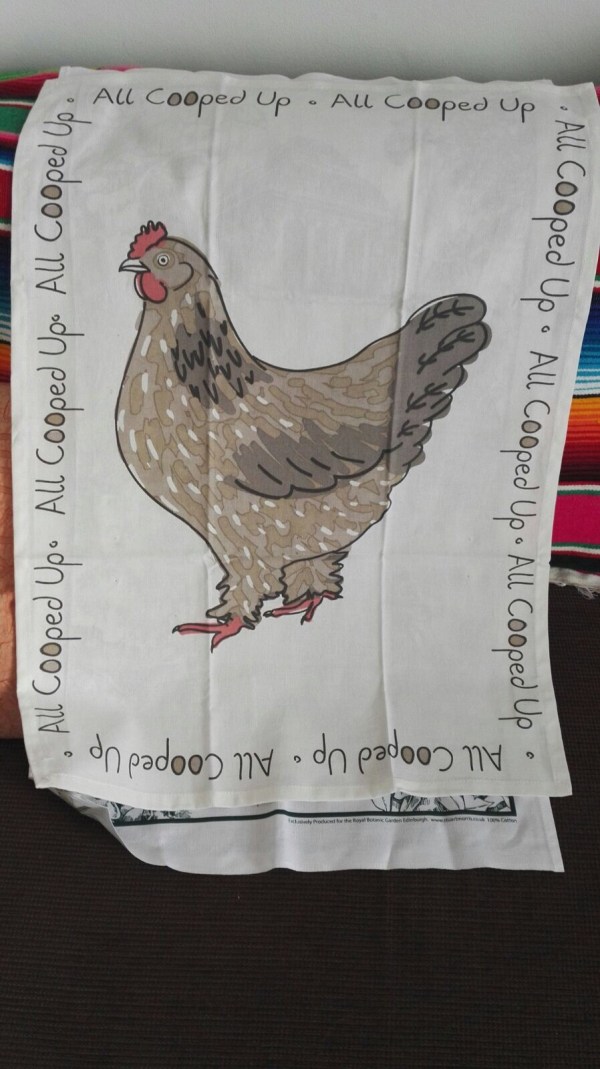 All Cooped Up • All Cooped Up
• All Cooped Up • All Cooped Up • All Cooped Up
• All Cooped Up • All Cooped Up
• All Cooped Up • All Cooped Up • All Cooped Up •
Exclusively Produced for the Royal Botanic Garden Edinburgh. 100% Cotton